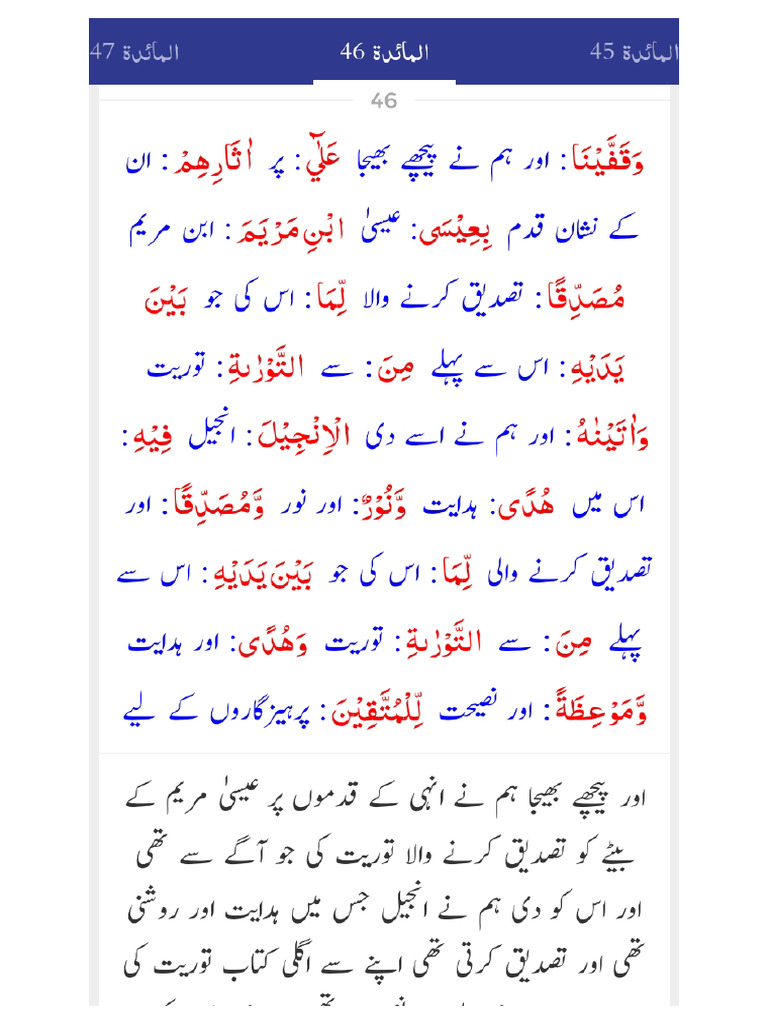 المائدة 45 المائدة 46 المائدة 47
46
وَقَفَّيْنَا: اور ہم نے پیچھے بھیجا عَلٰٓي: پر اٰثَارِهِمْ: ان
کے نشان قدم بِعِيْسَى: عیسیٰ ابْنِ مَرْيَمَ: ابن مریم
مُصَدِّقًا: تصدیق کرنے والا لِّمَا: اس کی جو بَيْنَ
يَدَيْهِ: اس سے پہلے مِنَ: سے التَّوْرٰىةِ: توریت
وَاٰتَيْنٰهُ: اور ہم نے اسے دی الْاِنْجِيْلَ: انجیل فِيْهِ:
اس میں هُدًى: ہدایت وَّنُوْرٌ: اور نور وَّمُصَدِّقًا: اور
تصدیق کرنے والی لِّمَا: اس کی جو بَيْنَ يَدَيْهِ: اس سے
پہلے مِنَ: سے التَّوْرٰىةِ: توریت وَهُدًى: اور ہدایت
وَّمَوْعِظَةً: اور نصیحت لِّلْمُتَّقِيْنَ: پرہیزگاروں کے لیے
اور پیچھے بھیجا ہم نے انہی کے قدموں پر عیسیٰ مریم کے
بیٹے کو تصدیق کرنے والا توریت کی جو آگے سے تھی
اور اس کو دی ہم نے انجیل جس میں ہدایت اور روشنی
تھی اور تصدیق کرتی تھی اپنے سے اگلی کتاب توریت کی